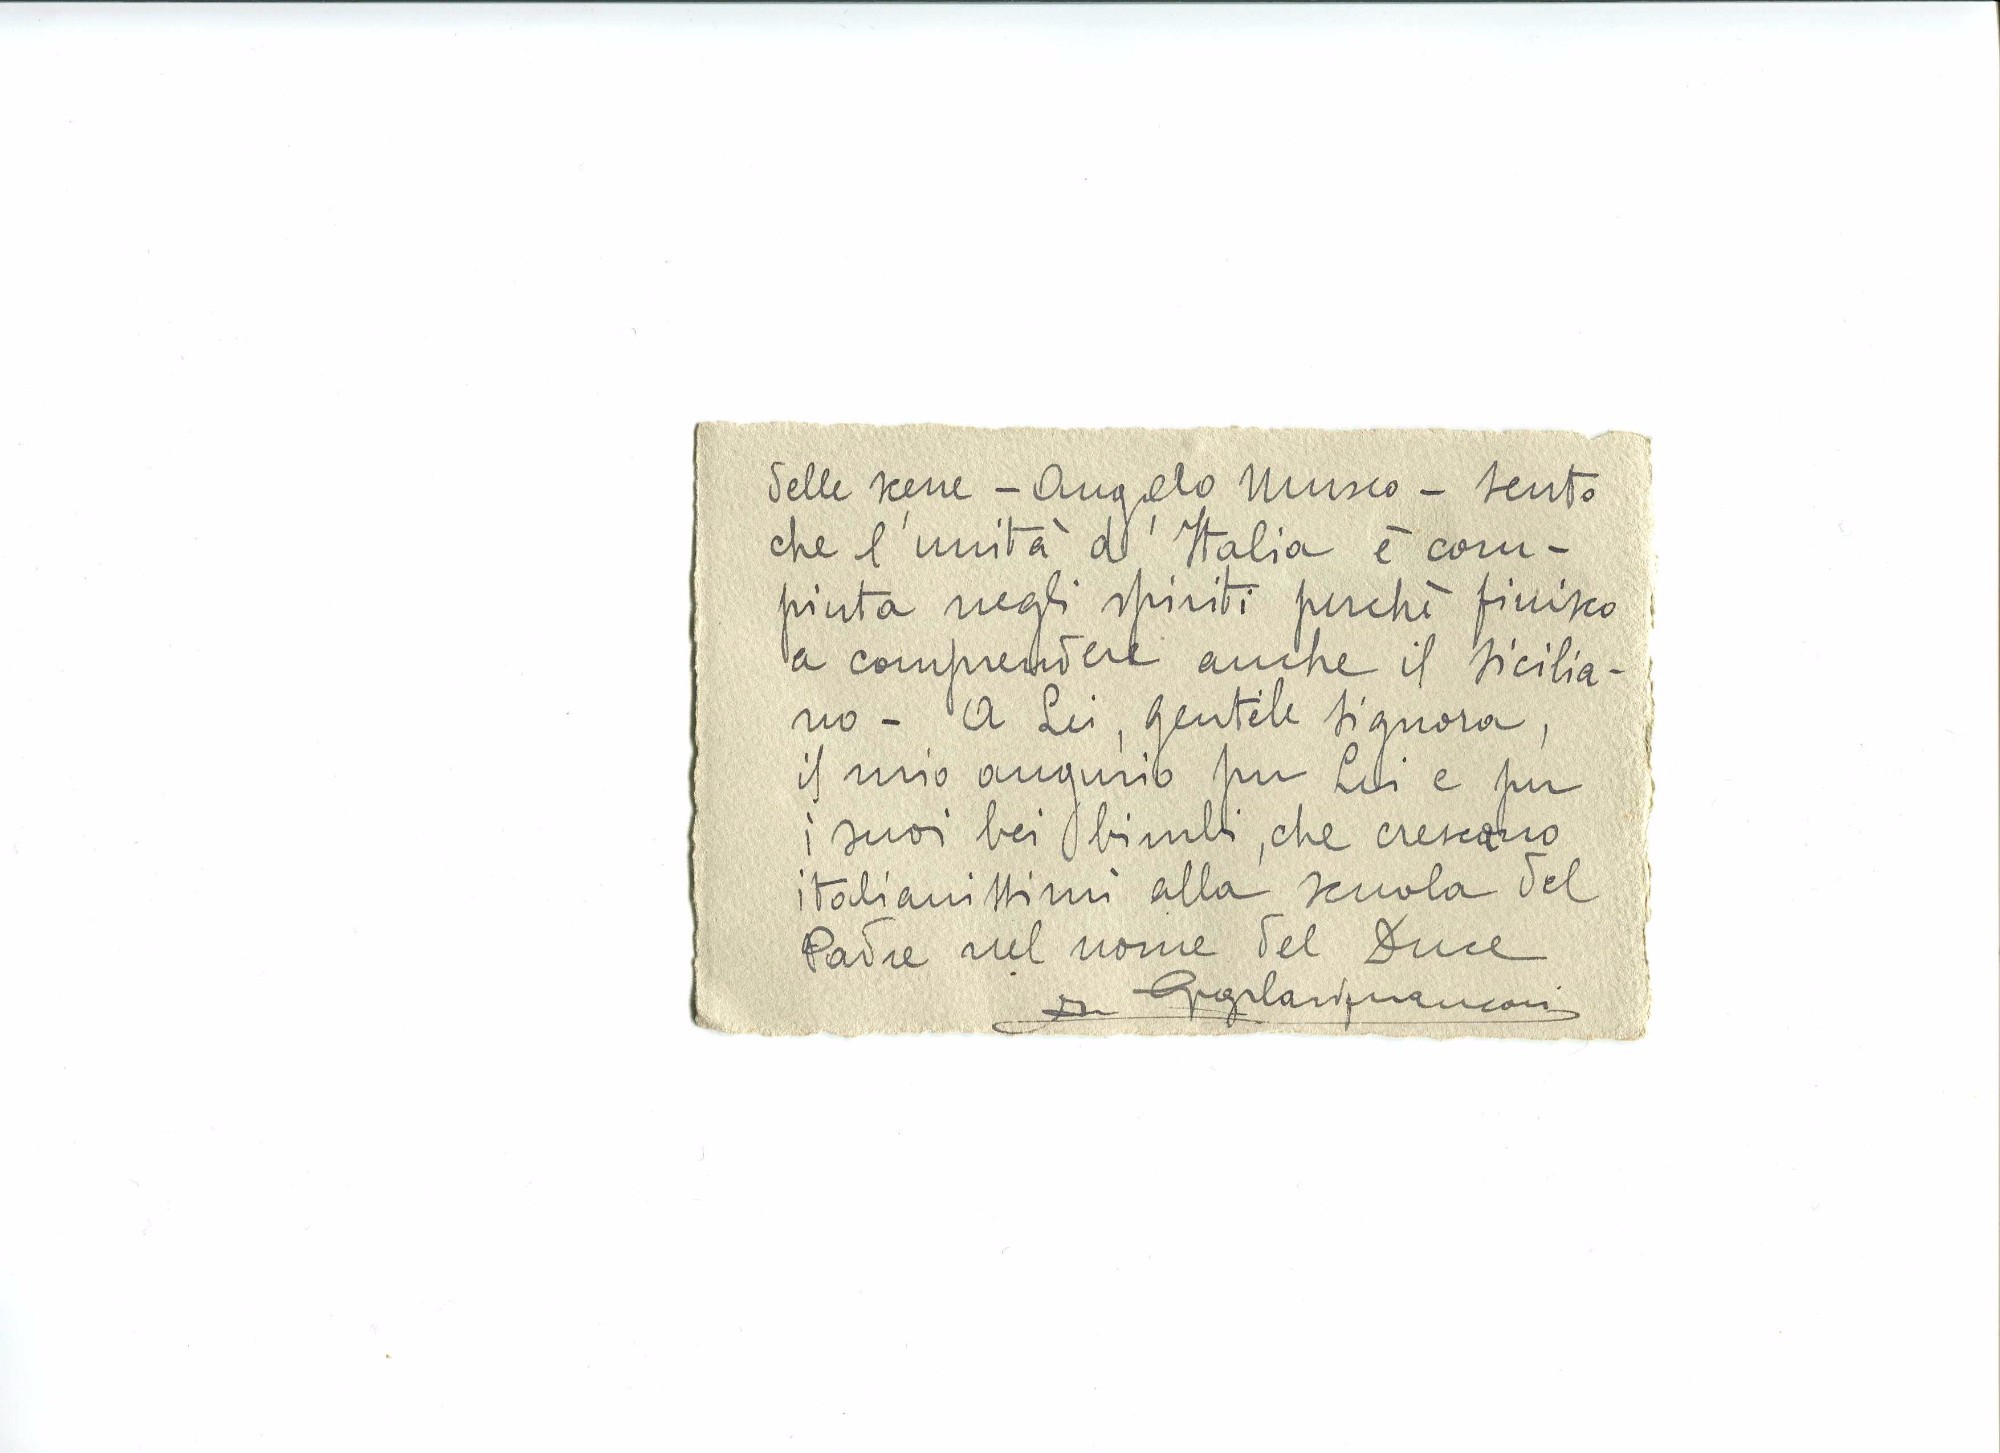 delle scene - Angelo Musco - sento
che l'unità d'Italia è com-
piuta negli spiriti perchè finisco
a comprendere anche il sicilia-
no - A Lei, gentile signora,
il mio augurio per Lei e per
i suoi bei bimbi, che crescano
italianissimi alla scuola del
Padre nel nome del Duce